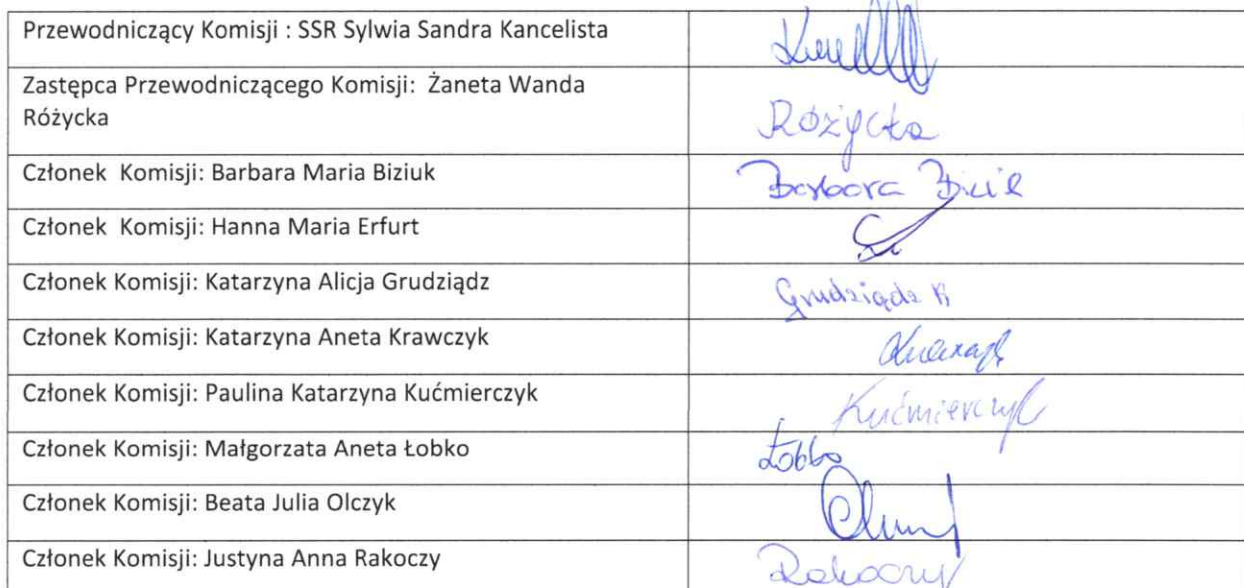 Przewodniczący Komisji : SSR Sylwia Sandra Kancelista
Zastępca Przewodniczącego Komisji: Żaneta Wanda
Różycka
Różycka
Członek Komisji: Barbara Maria Biziuk
Barbara
Członek Komisji: Hanna Maria Erfurt
Członek Komisji: Katarzyna Alicja Grudziądz
Grudziądz K
Członek Komisji: Katarzyna Aneta Krawczyk
Członek Komisji: Paulina Katarzyna Kućmierczyk
Kućmierczyk
Członek Komisji: Małgorzata Aneta Łobko
Łobko
Członek Komisji: Beata Julia Olczyk
Członek Komisji: Justyna Anna Rakoczy
Rakoczy